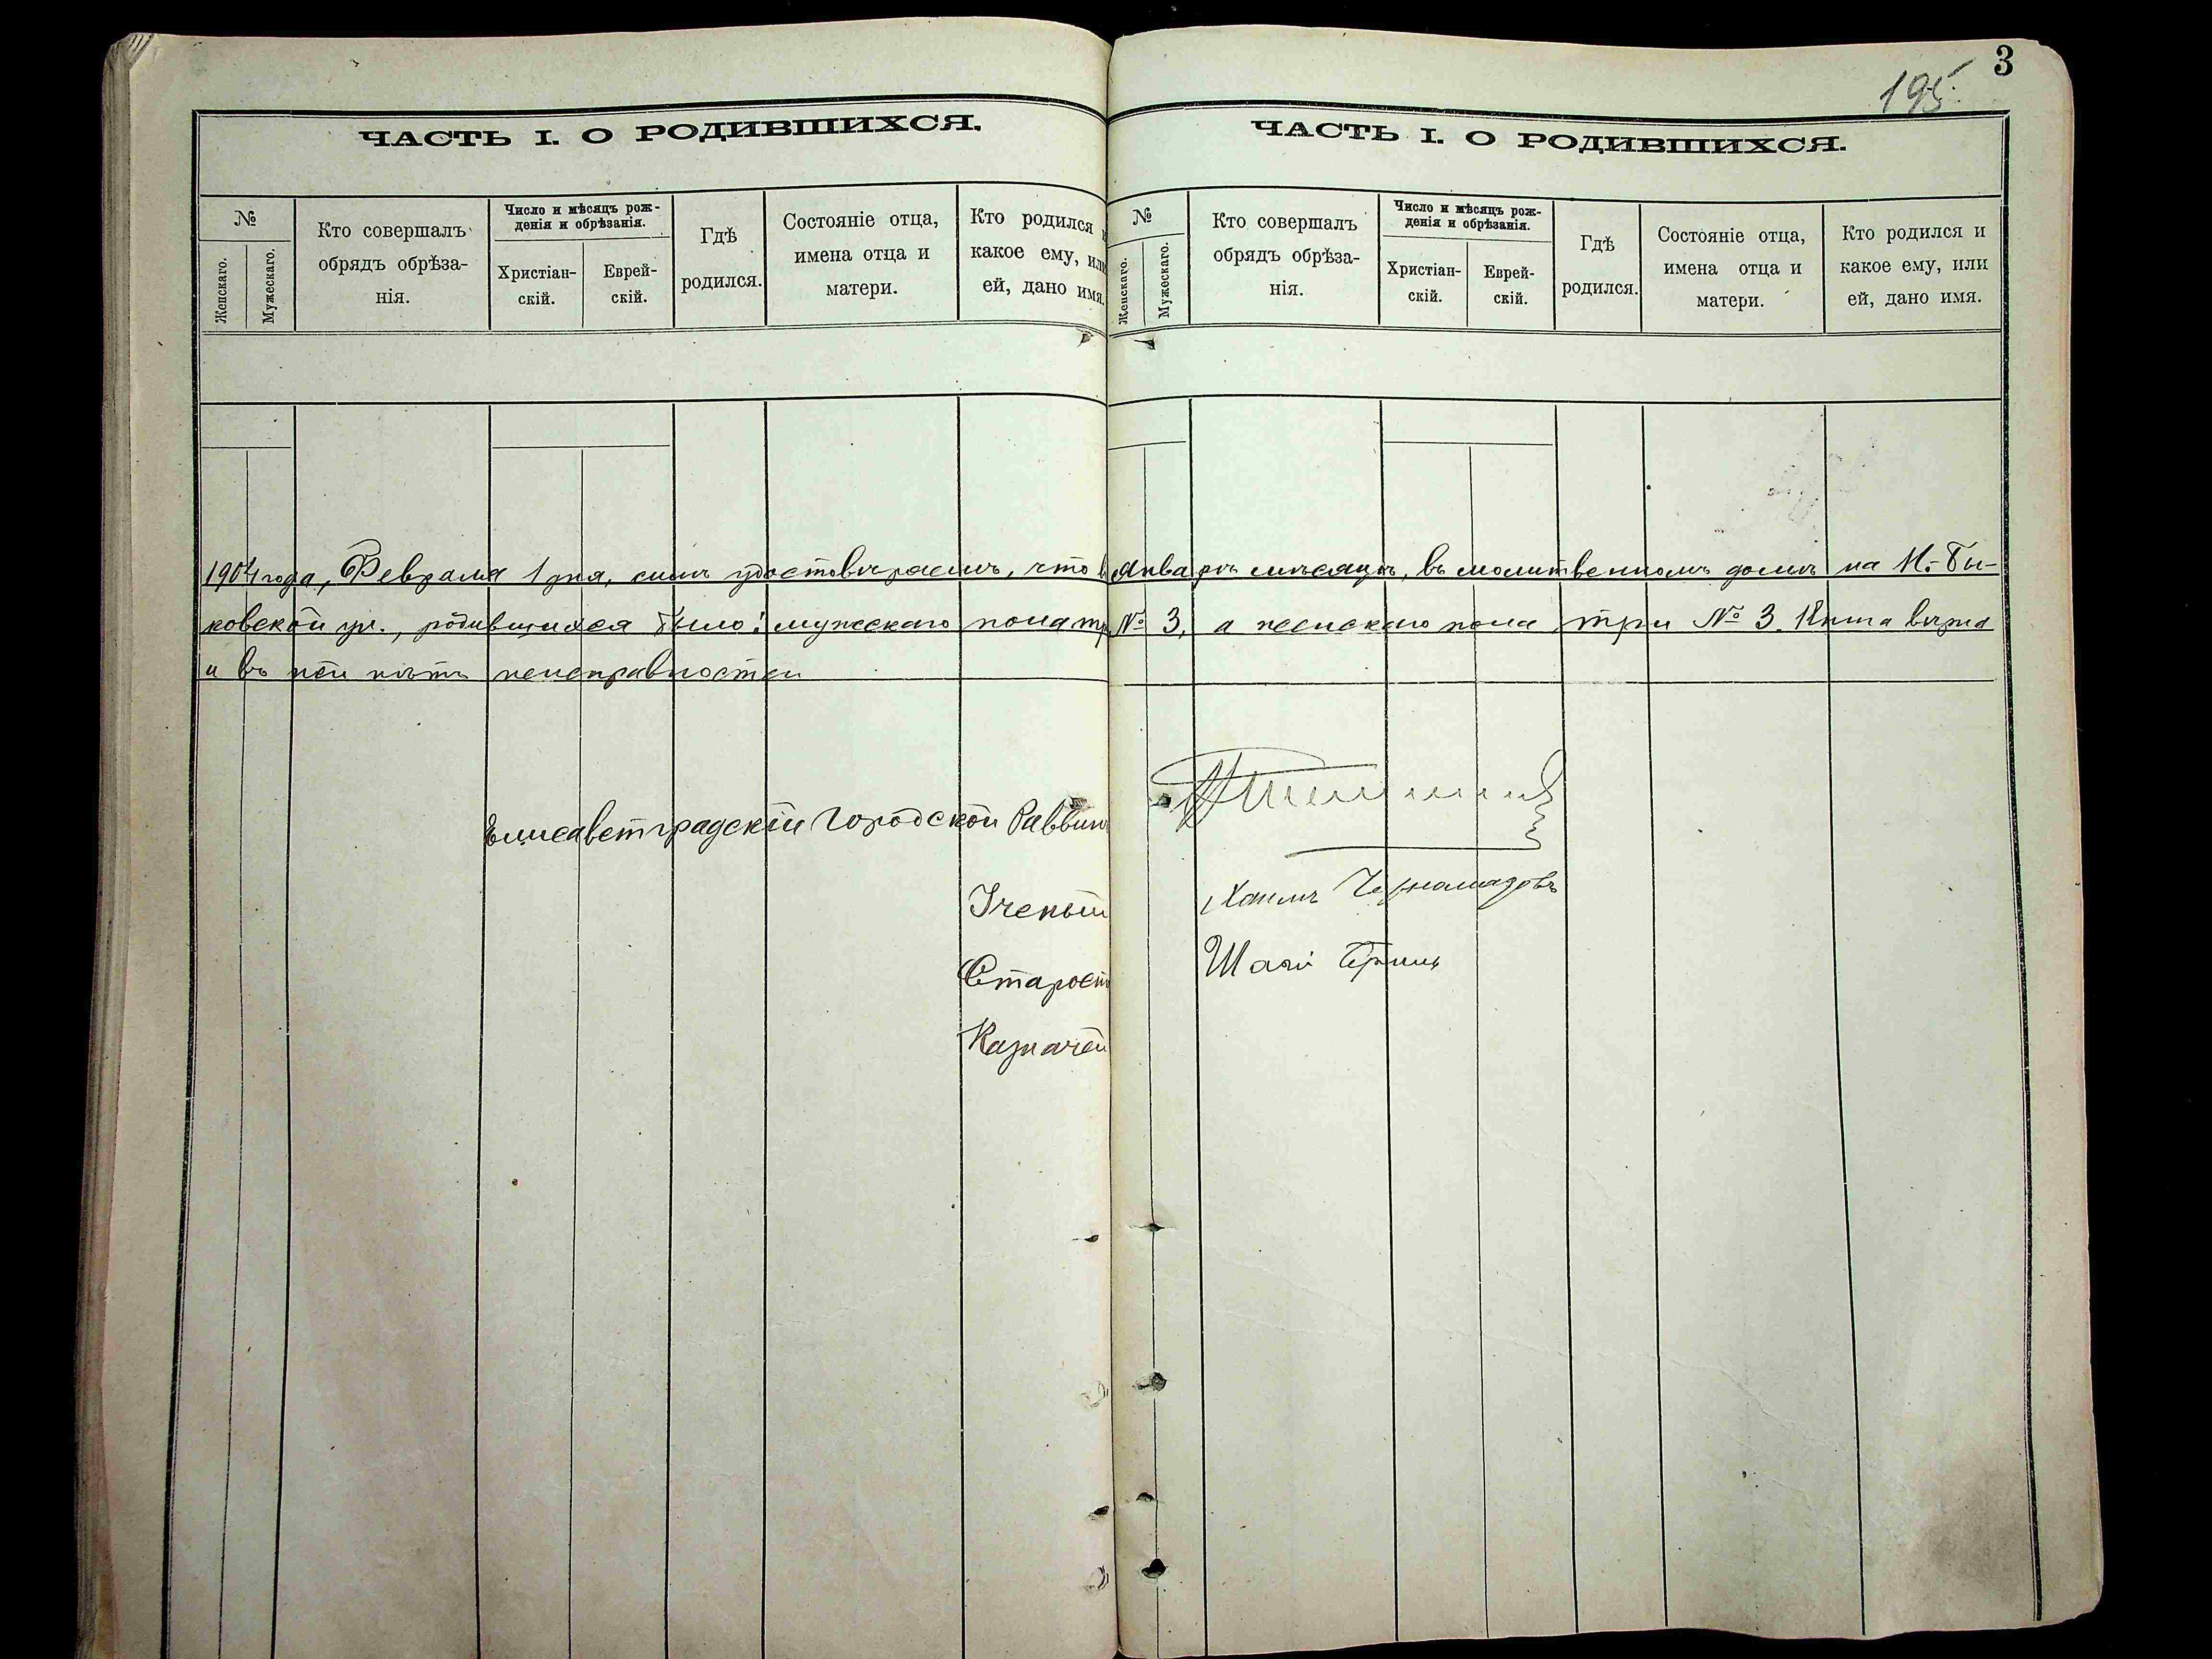 3
195.
ЧАСТЬ I. О РОДИВШИХСЯ.
№
Женскаго.
Мужескаго.
Кто совершалъ
обрядъ обрѣза-
нія.
Число и мѣсяцъ рож-
денія и обрѣзанія.
Христіан-
скій.
Еврей-
скій.
Гдѣ
родился.
Состояніе отца,
имена отца и
матери.
Кто родился и
какое ему, или
ей, дано имя.
ЧАСТЬ I. О РОДИВШИХСЯ.
№
Женскаго.
Мужескаго.
Кто совершалъ
обрядъ обрѣза-
нія.
Число и мѣсяцъ рож-
денія и обрѣзанія.
Христіан-
скій.
Еврей-
скій.
Гдѣ
родился.
Состояніе отца,
имена отца и
матери.
Кто родился и
какое ему, или
ей, дано имя.
1904 года, Февраля 1 дня, симъ удостовѣряемъ, что въ Январѣ мѣсяцѣ, въ молитвенномъ домѣ на И.-Бы-
ковской ул., родившихся было: мужескаго пола три № 3, а женскаго пола три № 3. Книга вѣрна
и въ ней нѣтъ неисправностей
Елисаветградскій Городской Раввинъ
Ученый Хаимъ
Староста Шаяі
Казначей